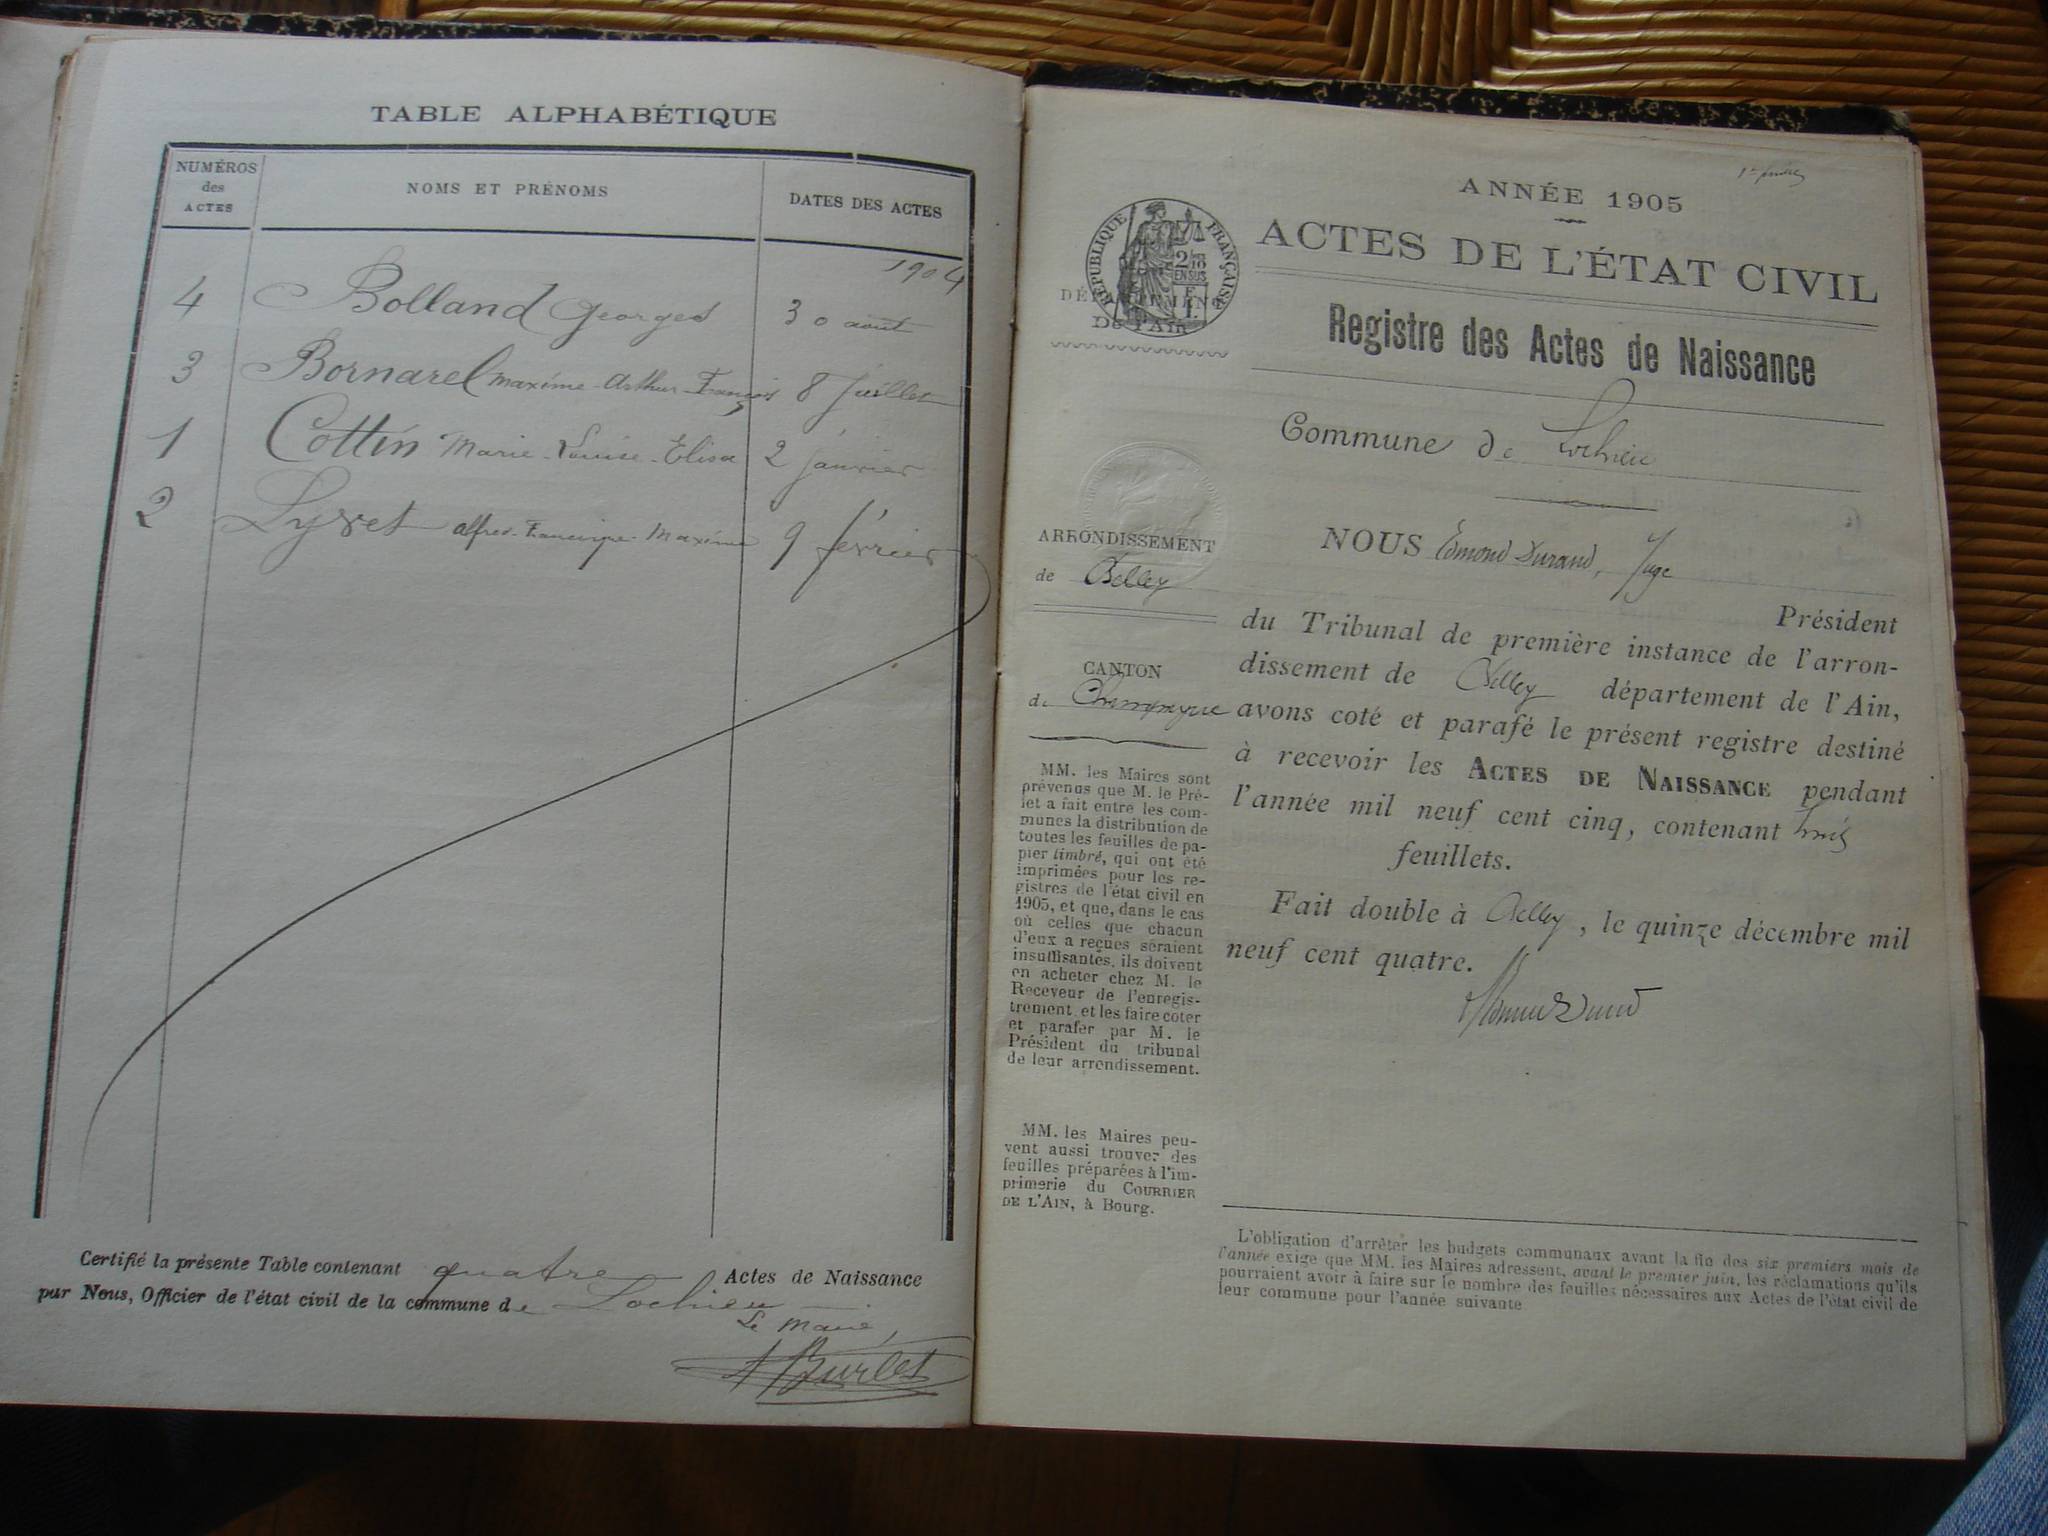 TABLE ALPHABÉTIQUE
NUMÉROS
des
ACTES
NOMS ET PRÉNOMS
DATES DES ACTES
1904
4 Bolland Georges 30 août
3 Bornarel Maxime-Arthur-François 8 Juillet
1 Cottin Marie-Louise-Elisa 2 janvier
2 Lyvet alfred-Francisque-Maxime 9 février
Certifié la présente Table contenant quatre Actes de Naissance
par Nous, Officier de l'état civil de la commune de Lochieu
Le Maire,
Burlet
ANNÉE 1905
ACTES DE L'ÉTAT CIVIL
RÉPUBLIQUE FRANÇAISE
2/10
EN SUS
DÉPARTEMENT
De l'Ain
Registre des Actes de Naissance
Commune de Lochieu
ARRONDISSEMENT
de Belley
CANTON
de Champagne
MM. les Maires sont
prévenus que M. le Pré-
fet a fait entre les com-
munes la distribution de
toutes les feuilles de pa-
pier timbré, qui ont été
imprimées pour les re-
gistres de l'état civil en
1905, et que, dans le cas
où celles que chacun
d'eux a reçues seraient
insuffisantes, ils doivent
en acheter chez M. le
Receveur de l'enregis-
trement et les faire coter
et parafer par M. le
Président du tribunal
de leur arrondissement.
MM. les Maires peu-
vent aussi trouver des
feuilles préparées à l'im-
primerie du COURRIER
DE L'AIN, à Bourg.
NOUS Edmond Durand, Juge
Président
du Tribunal de première instance de l'arron-
dissement de Belley département de l'Ain,
avons coté et parafé le présent registre destiné
à recevoir les ACTES DE NAISSANCE pendant
l'année mil neuf cent cinq, contenant trois
feuillets.
Fait double à Belley, le quinze décembre mil
neuf cent quatre.
L'obligation d'arrêter les budgets communaux avant la fin des six premiers mois de
l'année exige que MM. les Maires adressent, avant le premier juin, les réclamations qu'ils
pourraient avoir à faire sur le nombre des feuilles nécessaires aux Actes de l'état civil de
leur commune pour l'année suivante